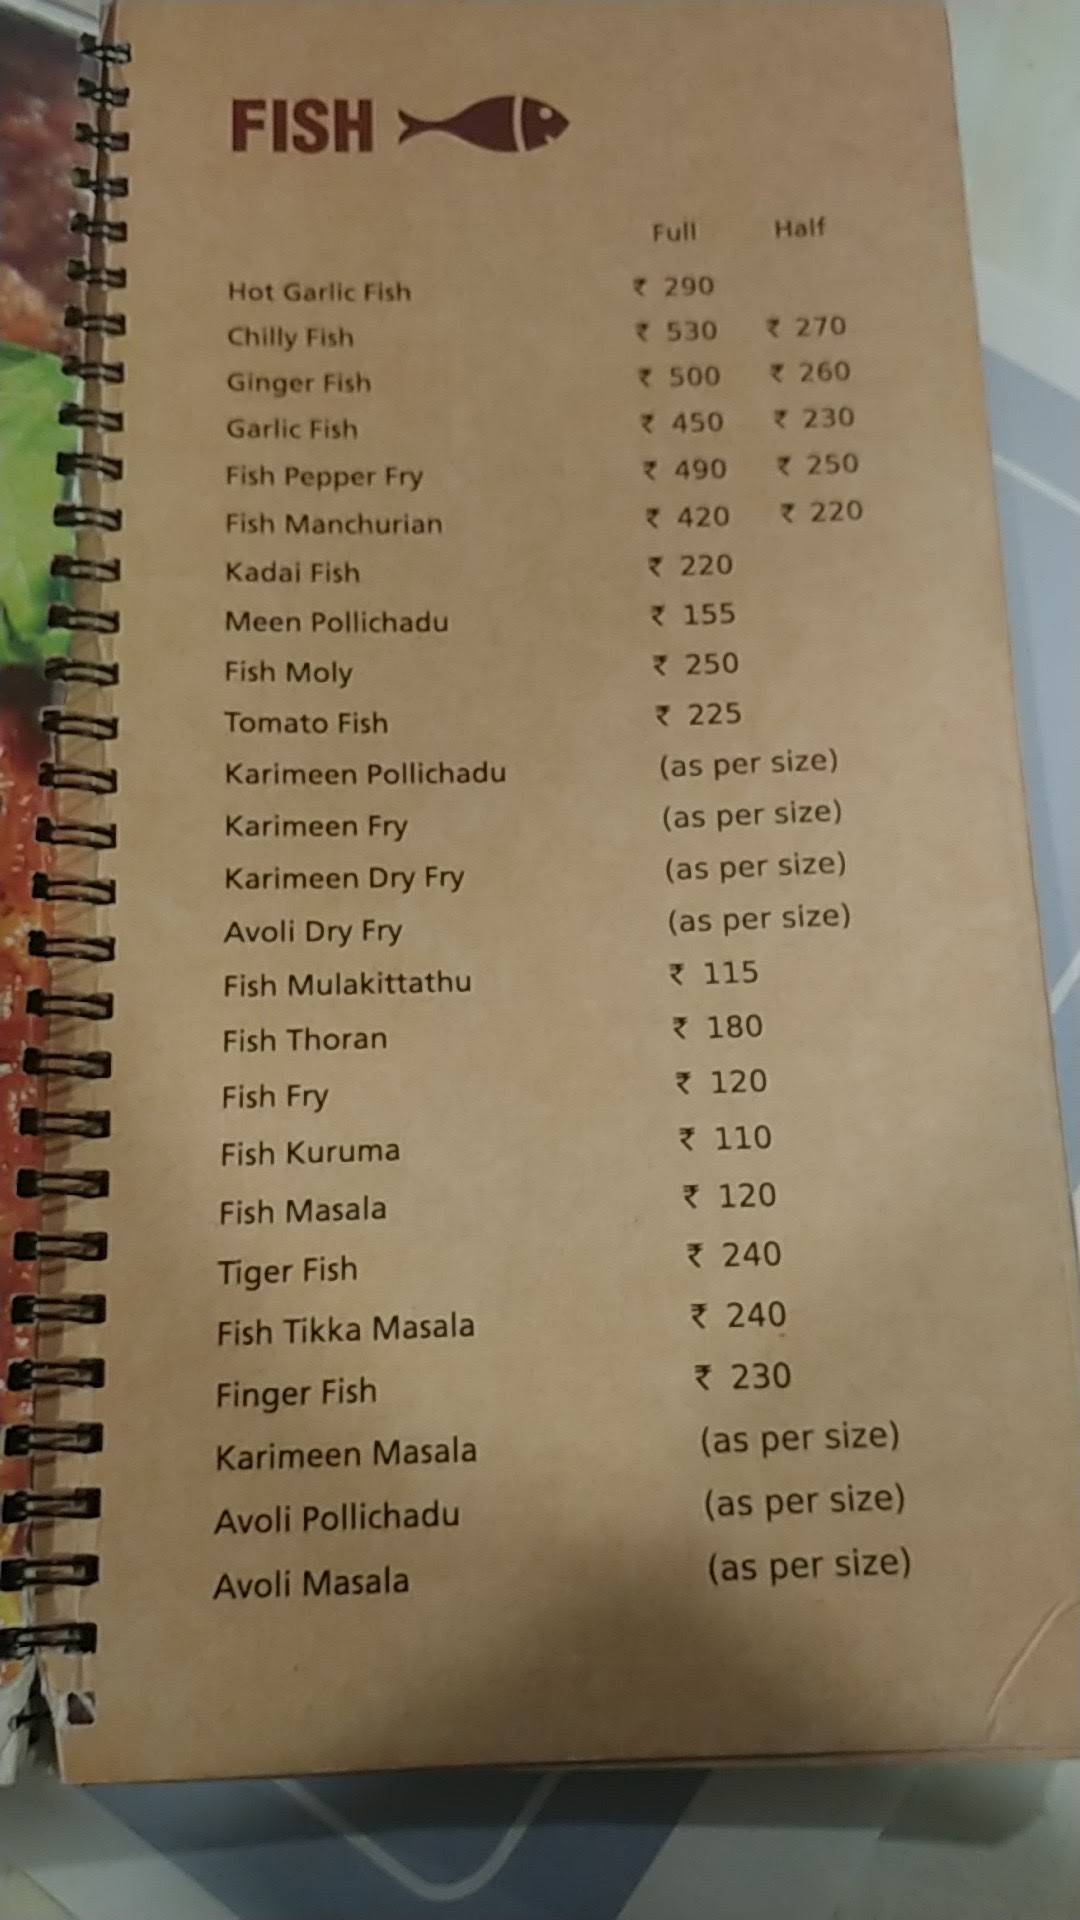 FISH
Full Half
Hot Garlic Fish ₹ 290
Chilly Fish ₹ 530 ₹ 270
Ginger Fish ₹ 500 ₹ 260
Garlic Fish ₹ 450 ₹ 230
Fish Pepper Fry ₹ 490 ₹ 250
Fish Manchurian ₹ 420 ₹ 220
Kadai Fish ₹ 220
Meen Pollichadu ₹ 155
Fish Moly ₹ 250
Tomato Fish ₹ 225
Karimeen Pollichadu (as per size)
Karimeen Fry (as per size)
Karimeen Dry Fry (as per size)
Avoli Dry Fry (as per size)
Fish Mulakittathu ₹ 115
Fish Thoran ₹ 180
Fish Fry ₹ 120
Fish Kuruma ₹ 110
Fish Masala ₹ 120
Tiger Fish ₹ 240
Fish Tikka Masala ₹ 240
Finger Fish ₹ 230
Karimeen Masala (as per size)
Avoli Pollichadu (as per size)
Avoli Masala (as per size)